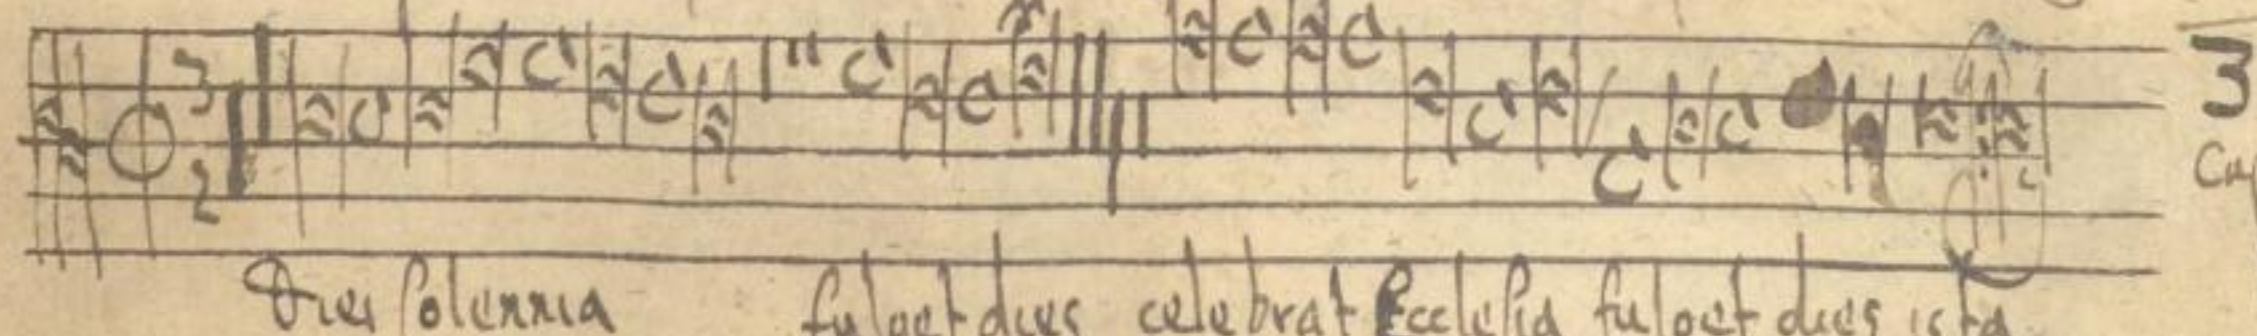 3
2
3
Dies solennia fulget dies celebrat Ecclesia fulget dies ista